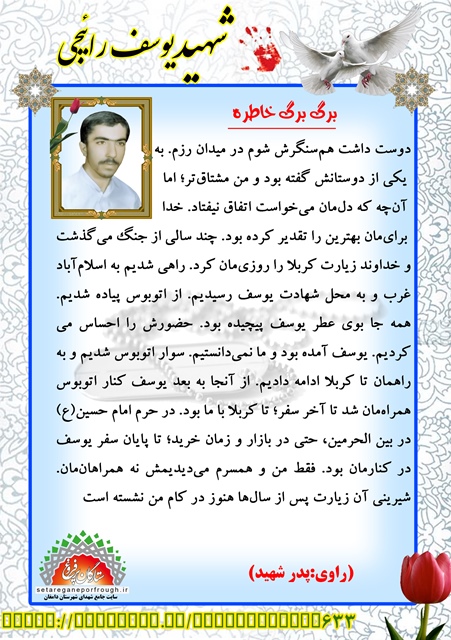 شهید یوسف رائیچی
برگ برگ خاطره
دوست داشت هم‌سنگرش شوم در میدان رزم. به
یکی از دوستانش گفته بود و من مشتاق‌تر؛ اما
آن‌چه که دل‌مان می‌خواست اتفاق نیفتاد. خدا
برای‌مان بهترین را تقدیر کرده بود. چند سالی از جنگ می‌گذشت
و خداوند زیارت کربلا را روزی‌مان کرد. راهی شدیم به اسلام‌آباد
غرب و به محل شهادت یوسف رسیدیم. از اتوبوس پیاده شدیم.
همه جا بوی عطر یوسف پیچیده بود. حضورش را احساس می
کردیم. یوسف آمده بود و ما نمی‌دانستیم. سوار اتوبوس شدیم و به
راهمان تا کربلا ادامه دادیم. از آنجا به بعد یوسف کنار اتوبوس
همراه‌مان شد تا آخر سفر؛ تا کربلا با ما بود. در حرم امام حسین(ع)
در بین الحرمین، حتی در بازار و زمان خرید؛ تا پایان سفر یوسف
در کنارمان بود. فقط من و همسرم می‌دیدیمش نه همراهان‌مان.
شیرینی آن زیارت پس از سال‌ها هنوز در کام من نشسته است
(راوی:پدر شهید)
ستارگان پرفروغ
setareganeporfrough.ir
سایت جامع شهدای شهرستان دامغان
۶۳۳